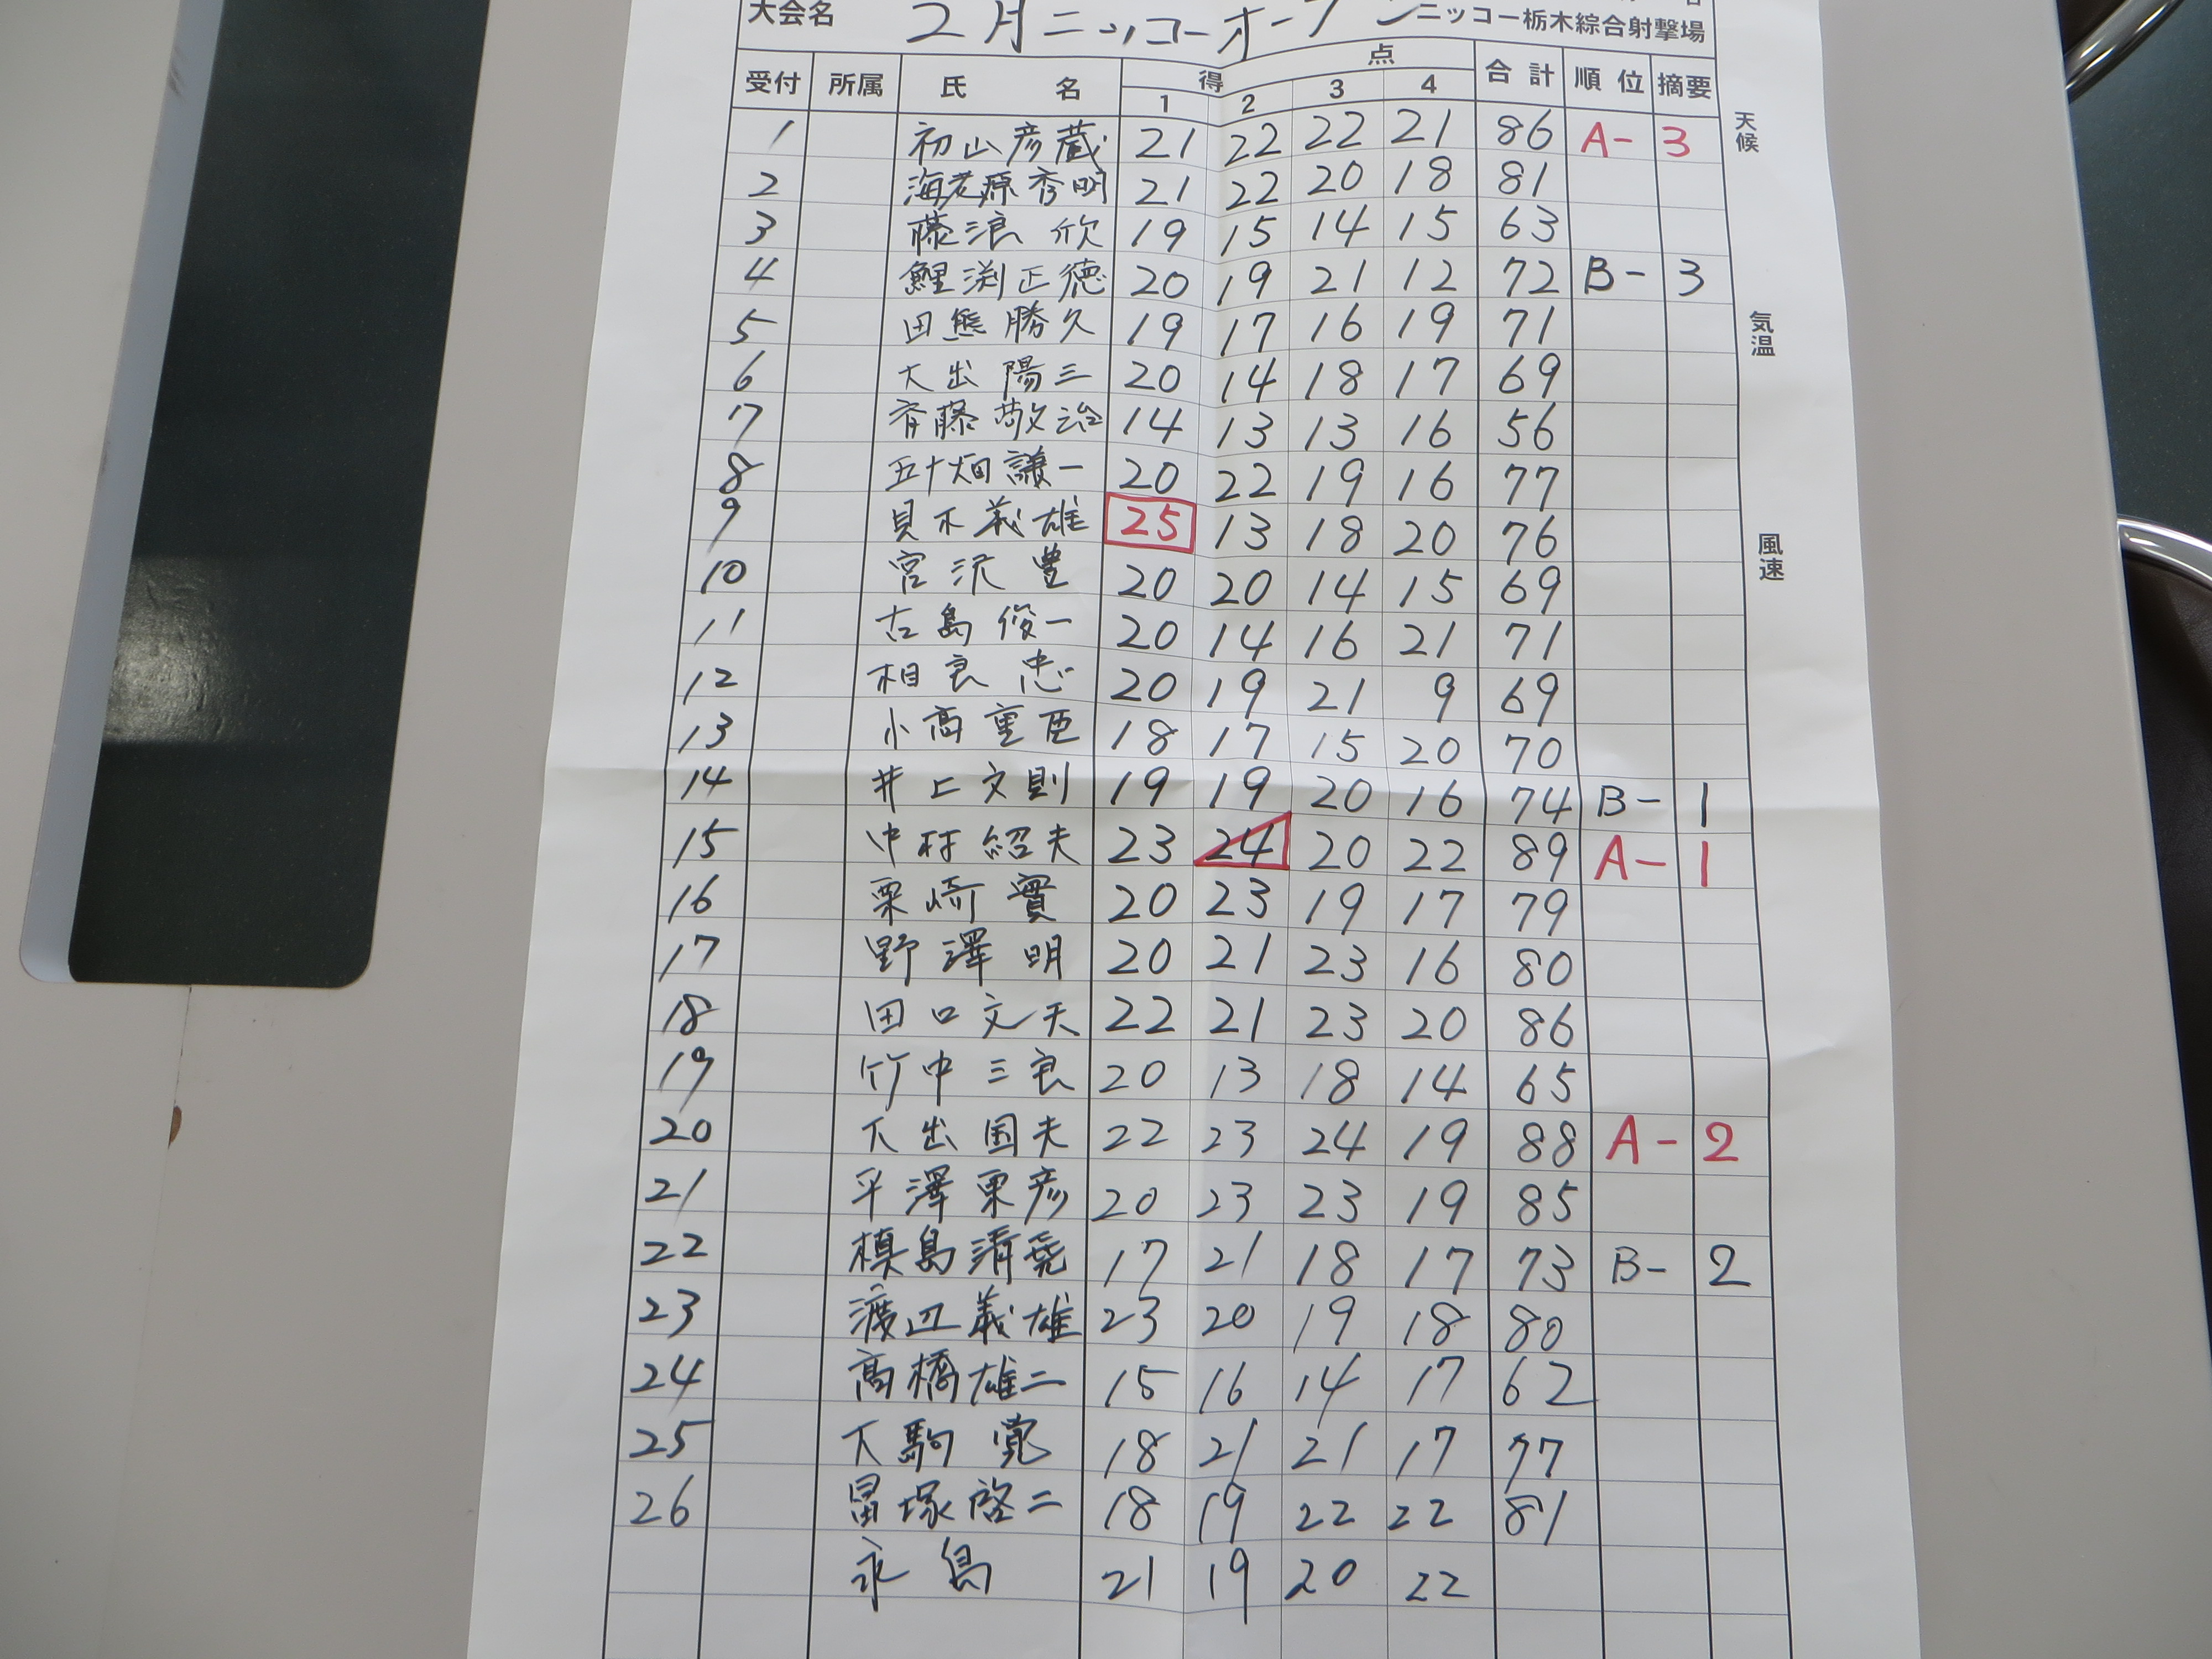 大会名 2月ニッコーオープン ニッコー栃木綜合射撃場
受付 所属 氏名 得点 合計 順位 摘要
1 2 3 4
1 初山彦蔵 21 22 22 21 86 A- 3
2 海老原秀明 21 22 20 18 81
3 藤浪欣 19 15 14 15 63
4 鯉渕正徳 20 19 21 12 72 B- 3
5 田熊勝久 19 17 16 19 71
6 大出陽三 20 14 18 17 69
7 斉藤敬治 14 13 13 16 56
8 五十畑謙一 20 22 19 16 77
9 貝木義雄 25 13 18 20 76
10 宮沢豊 20 20 14 15 69
11 古島俊一 20 14 16 21 71
12 相良忠 20 19 21 9 69
13 小高重臣 18 17 15 20 70
14 井上文則 19 19 20 16 74 B- 1
15 中村紹夫 23 24 20 22 89 A- 1
16 栗崎實 20 23 19 17 79
17 野澤明 20 21 23 16 80
18 田口文夫 22 21 23 20 86
19 竹中三良 20 13 18 14 65
20 大出国夫 22 23 24 19 88 A- 2
21 平澤栗彦 20 23 23 19 85
22 槙島清尭 17 21 18 17 73 B- 2
23 渡辺義雄 23 20 19 18 80
24 高橋雄二 15 16 14 17 62
25 大駒寛 18 21 21 17 77
26 冨塚啓二 18 19 22 22 81
永島 21 19 20 22
天候
気温
風速